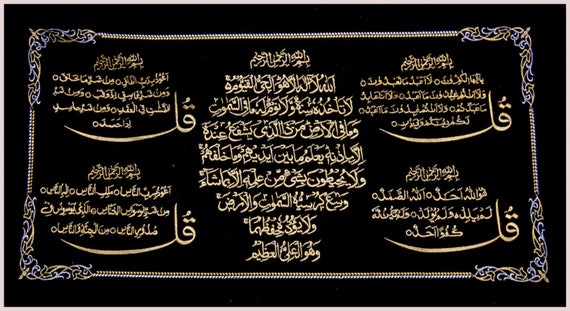 بسم الله الرحمن الرحيم
قل يا أيها الكافرون لا أعبد ما تعبدون
ولا أنتم عابدون ما أعبد ولا أنا عابد
ما عبدتم ولا أنتم عابدون ما أعبد
لكم دينكم ولي دين
بسم الله الرحمن الرحيم
قل هو الله أحد الله الصمد
لم يلد ولم يولد ولم يكن له
كفوا أحد
بسم الله الرحمن الرحيم
الله لا إله إلا هو الحي القيوم
لا تأخذه سنة ولا نوم له ما في السموات
وما في الأرض من ذا الذي يشفع عنده
إلا بإذنه يعلم ما بين أيديهم وما خلفهم
ولا يحيطون بشيء من علمه إلا بما شاء
وسع كرسيه السموات والأرض
ولا يؤده حفظهما
وهو العلي العظيم
بسم الله الرحمن الرحيم
قل أعوذ برب الفلق من شر ما خلق
ومن شر غاسق إذا وقب ومن شر
النفثت في العقد ومن شر حاسد
إذا حسد
بسم الله الرحمن الرحيم
قل أعوذ برب الناس ملك الناس إله الناس
من شر الوسواس الخناس الذي يوسوس في
صدور الناس من الجنة والناس